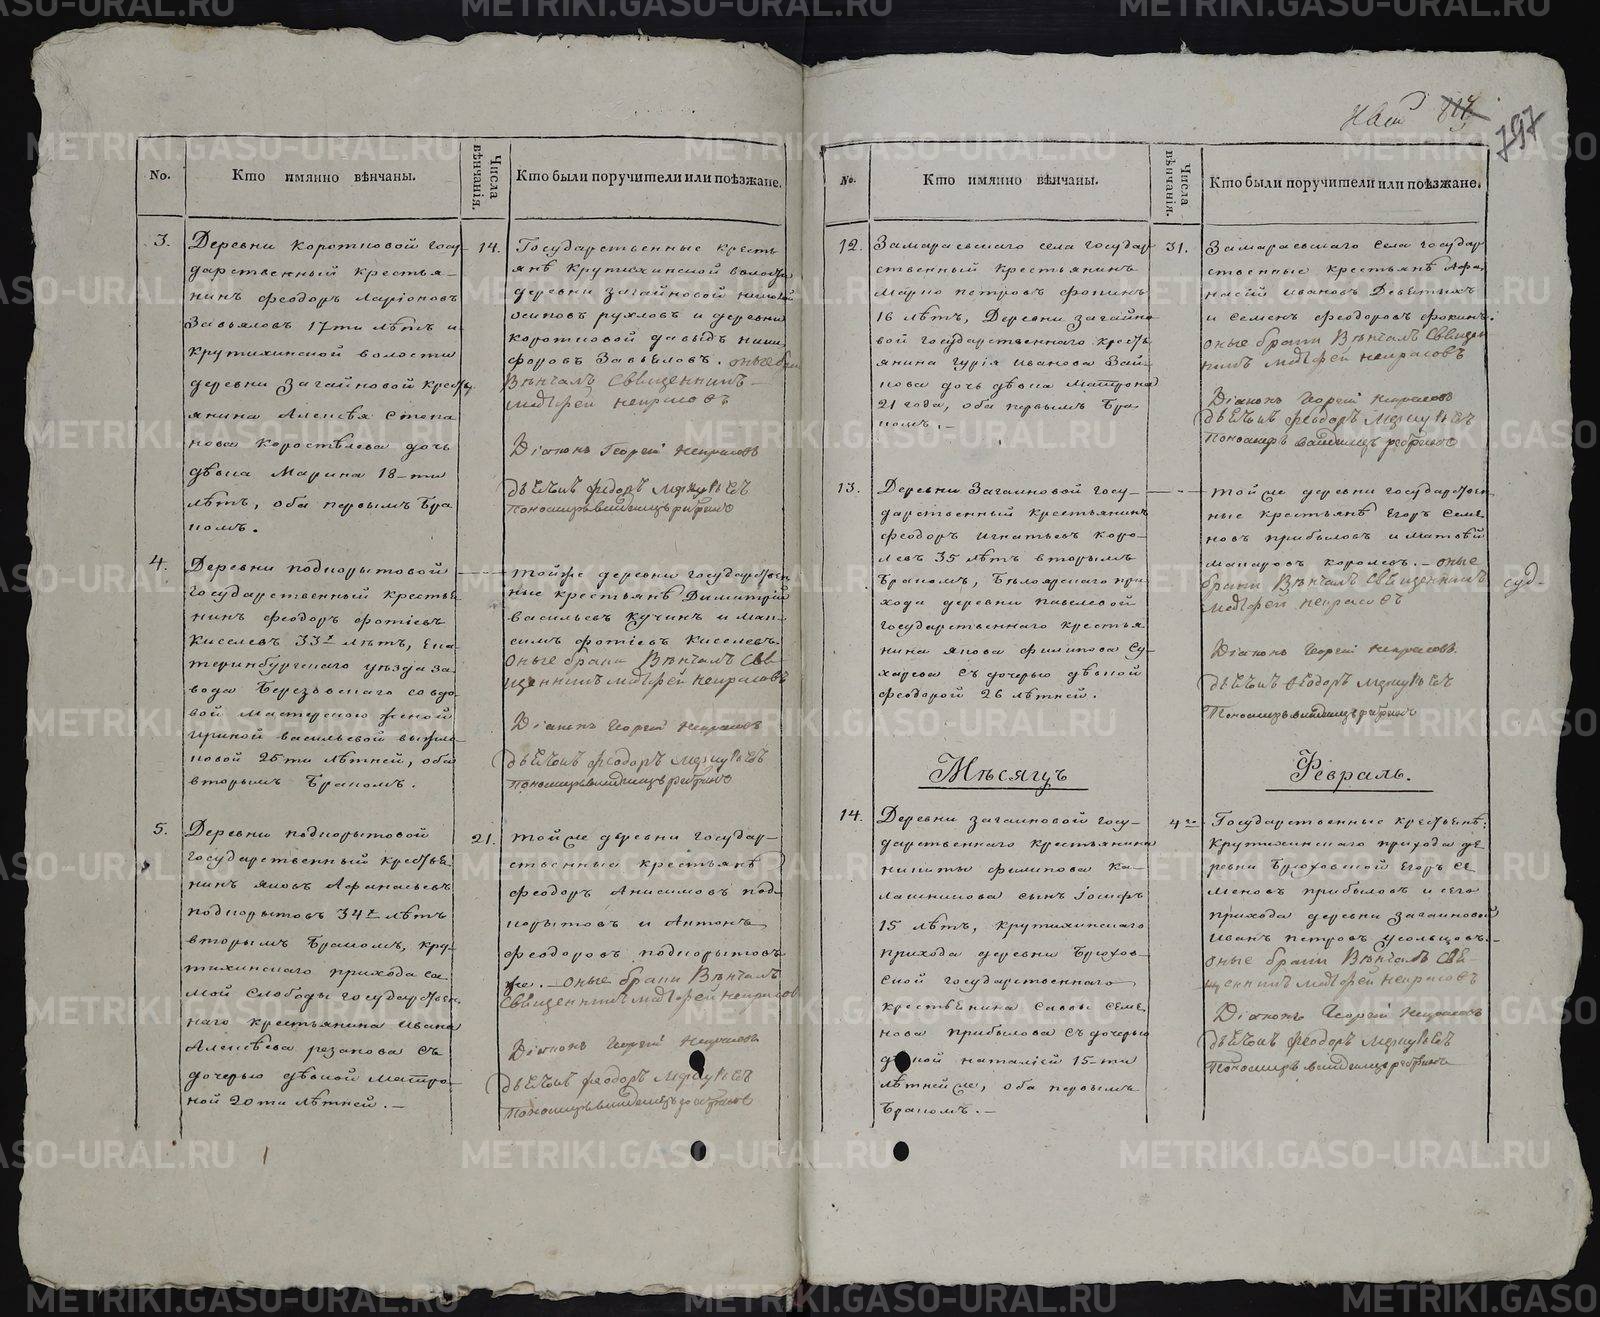 No.
Кто имянно вѣнчаны.
Числа вѣнчанія.
Кто были поручители или поѣзжане.
3.
Деревни Коротковой госу-
дарственный крестья-
нинъ Феодоръ Ларіоновъ
Завьяловъ 17ти лѣтъ и
Крутихинской волости
деревни Загайновой кресть
янина Алексѣя Степа
нова Коростелева дочь
дѣвка Марина 18-ти
лѣтъ, оба первымъ бра
комъ.
14.
Государственные кресть
янѣ Крутихинской волости
деревни Загайновой
Осиповъ Рухловъ и деревни
Коротковой Давыдъ Ники
форовъ Завьяловъ. оные
Вѣнчалъ Священникъ
Некрасовъ
Діаконъ Георгій Некрасовъ
Дьячекъ Феодоръ
Пономарь
4.
Деревни Подкорытовой
Государственный крестья
нинъ Феодоръ Фотіевъ
Киселевъ 33х лѣтъ, Ека
теринбургскаго уѣзда за
вода Березовскаго совдо
вой мастерскою женой
Ириной Васильевой
новой 25ти лѣтней, оба
вторымъ бракомъ.
тойже деревни государствен
ные крестьянѣ Димитрій
Васильевъ Кучинъ и Мак
симъ Фотіевъ Киселевъ.
Оные браки Вѣнчалъ Свя-
щенникъ Некрасовъ
Діаконъ Георгій Некрасовъ
Дьячекъ Феодоръ
Пономарь
5.
Деревни Подкорытовой
государственный крестья
нинъ Яковъ Афанасьевъ
Подкорытовъ 34х лѣтъ
вторымъ бракомъ, Кру-
тихинскаго прихода са-
мой Слободы государствен
наго крестьянина Ивана
Алексѣева Резанова съ
дочерью дѣвкой Матро-
ной 20ти лѣтней. —
21.
тойже деревни государ-
ственные крестьянѣ
Феодоръ Анисимовъ Под-
корытовъ и Антонъ
Феодоровъ Подкорытовъ
же. — оные браки Вѣнчалъ
Священникъ Некрасовъ
Діаконъ Георгій Некрасовъ
Дьячекъ Феодоръ
Пономарь
797
No.
Кто имянно вѣнчаны.
Числа вѣнчанія.
Кто были поручители или поѣзжане.
12.
Замараевскаго села государ
ственный крестьянинъ
Марко Петровъ Фокинъ
16 лѣтъ, Деревни Загайно
вой государственнаго кресть
янина Гурія Иванова Зай
кова дочь дѣвка Матрона
21 года, оба первымъ бра
комъ. —
31.
Замараевскаго села государ
ственные крестьянѣ Афа
насій Ивановъ Девятыхъ
и Семенъ Феодоровъ Фокинъ.
оные браки Вѣнчалъ Священ
никъ Некрасовъ
Діаконъ Георгій Некрасовъ
Дьячекъ Феодоръ
Пономарь
13.
Деревни Загаиновой госу-
дарственный крестьянинъ
Феодоръ Игнатьевъ Коро-
левъ 35 лѣтъ вторымъ
бракомъ, Бѣлоярскаго при
хода деревни Павелевой
государственнаго крестья
нина Якова Филипова Су-
харева съ дочерью дѣвкой
Феодорой 26 лѣтней.
тойже деревни государствен
ные крестьянѣ Егоръ Семе
новъ Прибыловъ и Матвѣй
Макаровъ Королевъ. — оные
браки Вѣнчалъ Священникъ
Некрасовъ
Діаконъ Георгій Некрасовъ.
Дьячекъ Феодоръ
Пономарь
суд-
Мѣсяцъ
Февраль.
14.
Деревни Загаиновой госу-
дарственнаго крестьянина
Никиты Филипова Ка-
лашникова сынъ Іосифъ
15 лѣтъ, Крутихинскаго
прихода деревни Брюхов-
ской государственнаго
крестьянина Саввы Семе
нова Прибылова съ дочерью
дѣвкой Наталіей 15-ти
лѣтней же, оба первымъ
бракомъ. —
4го
Государственные крестьянѣ:
Крутихинскаго прихода де-
ревни Брюховской Егоръ Се
меновъ Прибыловъ и сего
прихода деревни Загаиновой
Иванъ Петровъ Усольцовъ. —
оные браки Вѣнчалъ Свя-
щенникъ Некрасовъ
Діаконъ Георгій Некрасовъ
Дьячекъ Феодоръ
Пономарь
METRIKI.GASO-URAL.RU